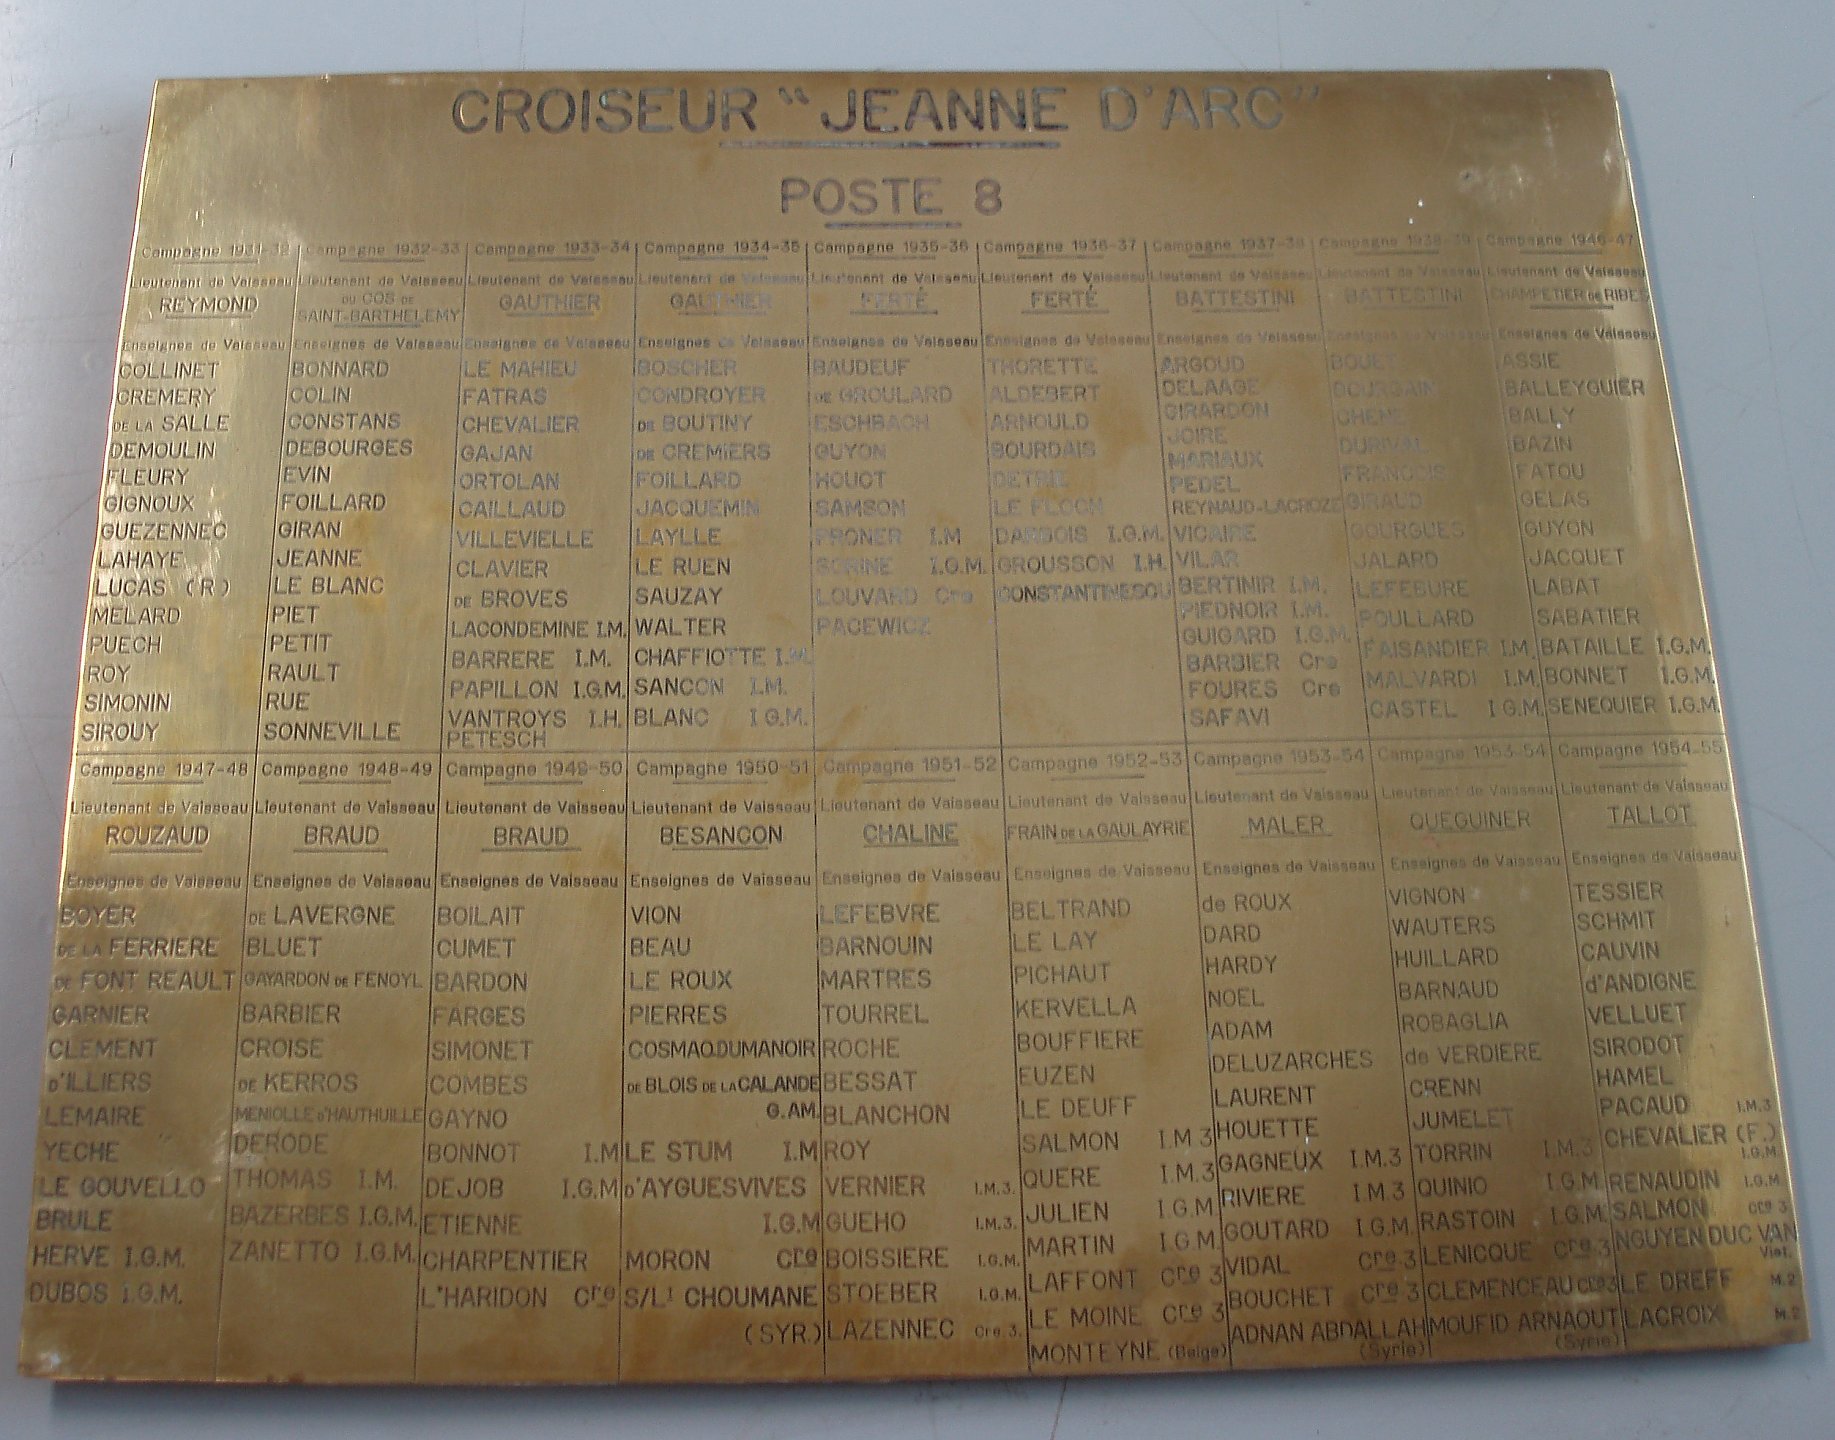 CROISEUR "JEANNE D'ARC"
POSTE 8
Campagne 1931-32
Lieutenant de Vaisseau
REYMOND
Enseignes de Vaisseau
COLLINET
CREMERY
DE LA SALLE
DEMOULIN
FLEURY
GIGNOUX
GUEZENNEC
LAHAYE
LUCAS (R)
MELARD
PUECH
ROY
SIMONIN
SIROUY
Campagne 1932-33
Lieutenant de Vaisseau
DU COS DE
SAINT-BARTHELEMY
Enseignes de Vaisseau
BONNARD
COLIN
CONSTANS
DEBOURGES
EVIN
FOILLARD
GIRAN
JEANNE
LE BLANC
PIET
PETIT
RAULT
RUE
SONNEVILLE
Campagne 1933-34
Lieutenant de Vaisseau
GAUTHIER
Enseignes de Vaisseau
LE MAHIEU
FATRAS
CHEVALIER
GAJAN
ORTOLAN
CAILLAUD
VILLEVIELLE
CLAVIER
DE BROVES
LACONDEMINE I.M.
BARRERE I.M.
PAPILLON I.G.M.
VANTROYS I.H.
PETESCH
Campagne 1934-35
Lieutenant de Vaisseau
GAUTHIER
Enseignes de Vaisseau
BOSCHER
CONDROYER
DE BOUTINY
DE CREMIERS
FOILLARD
JACQUEMIN
LAYLLE
LE RUEN
SAUZAY
WALTER
CHAFFIOTTE I.M.
SANCON I.M.
BLANC I.G.M.
Campagne 1935-36
Lieutenant de Vaisseau
FERTÉ
Enseignes de Vaisseau
BAUDEUF
DE GROULARD
ESCHBACH
GUYON
HOUOT
SAMSON
PRONER I.M
SORINE I.G.M.
LOUVARD Cre
PACEWICZ
Campagne 1936-37
Lieutenant de Vaisseau
FERTÉ
Enseignes de Vaisseau
THORETTE
ALDEBERT
ARNOULD
BOURDAIS
DETRIE
LE FLOCH
DARBOIS I.G.M.
GROUSSON I.H.
CONSTANTINESCU
Campagne 1937-38
Lieutenant de Vaisseau
BATTESTINI
Enseignes de Vaisseau
ARGOUD
DELAAGE
GIRARDON
JOIRE
MARIAUX
PEDEL
REYNAUD-LACROZE
VICAIRE
VILAR
BERTINIR I.M.
PIEDNOIR I.M.
GUIGARD I.G.M.
BARBIER Cre
FOURES Cre
SAFAVI
Campagne 1938-39
Lieutenant de Vaisseau
BATTESTINI
Enseignes de Vaisseau
BOUET
BOURGAIN
CHENE
DURIVAL
FRANCOIS
GIRAUD
GOURGUES
JALARD
LEFEBURE
POULLARD
FAISANDIER I.M.
MALVARDI I.M.
CASTEL I.G.M.
Campagne 1946-47
Lieutenant de Vaisseau
CHAMPETIER DE RIBES
Enseignes de Vaisseau
ASSIE
BALLEYGUIER
BALLY
BAZIN
FATOU
GELAS
GUYON
JACQUET
LABAT
SABATIER
BATAILLE I.G.M.
BONNET I.G.M.
SENEQUIER I.G.M.
Campagne 1947-48
Lieutenant de Vaisseau
ROUZAUD
Enseignes de Vaisseau
BOYER
DE LA FERRIERE
DE FONT REAULT
GARNIER
CLEMENT
D'ILLIERS
LEMAIRE
YECHE
LE GOUVELLO
BRULE
HERVE I.G.M.
DUBOS I.G.M.
Campagne 1948-49
Lieutenant de Vaisseau
BRAUD
Enseignes de Vaisseau
DE LAVERGNE
BLUET
GAYARDON DE FENOYL
BARBIER
CROISE
DE KERROS
MENIOLLE d'HAUTHUILLE
DERODE
THOMAS I.M.
BAZERBES I.G.M.
ZANETTO I.G.M.
Campagne 1949-50
Lieutenant de Vaisseau
BRAUD
Enseignes de Vaisseau
BOILAIT
CUMET
BARDON
FARGES
SIMONET
COMBES
GAYNO
BONNOT I.M
DEJOB I.G.M
ETIENNE
CHARPENTIER
L'HARIDON Cre
Campagne 1950-51
Lieutenant de Vaisseau
BESANCON
Enseignes de Vaisseau
VION
BEAU
LE ROUX
PIERRES
COSMAO.DUMANOIR
DE BLOIS DE LA CALANDE
G.AM.
LE STUM I.M
D'AYGUESVIVES
I.G.M
MORON Cre
S/Lt CHOUMANE
(SYR.)
Campagne 1951-52
Lieutenant de Vaisseau
CHALINE
Enseignes de Vaisseau
LEFEBVRE
BARNOUIN
MARTRES
TOURREL
ROCHE
BESSAT
BLANCHON
ROY
VERNIER I.M.3.
GUEHO I.M.3.
BOISSIERE I.G.M.
STOEBER I.G.M.
LAZENNEC Cre.3.
Campagne 1952-53
Lieutenant de Vaisseau
FRAIN DE LA GAULAYRIE
Enseignes de Vaisseau
BELTRAND
LE LAY
PICHAUT
KERVELLA
BOUFFIERE
EUZEN
LE DEUFF
SALMON I.M 3
QUERE I.M.3
JULIEN I.G.M
MARTIN I.G.M
LAFFONT Cre 3
LE MOINE Cre 3
MONTEYNE (Belge)
Campagne 1953-54
Lieutenant de Vaisseau
MALER
Enseignes de Vaisseau
de ROUX
DARD
HARDY
NOEL
ADAM
DELUZARCHES
LAURENT
HOUETTE
GAGNEUX I.M.3
RIVIERE I.M.3
GOUTARD I.G.M
VIDAL Cre 3
BOUCHET Cre 3
ADNAN ABDALLAH
(Syrie)
Campagne 1953-54
Lieutenant de Vaisseau
QUEGUINER
Enseignes de Vaisseau
VIGNON
WAUTERS
HUILLARD
BARNAUD
ROBAGLIA
de VERDIERE
CRENN
JUMELET
TORRIN I.M.3
QUINIO I.G.M
RASTOIN I.G.M.
LENICQUE Cre 3
CLEMENCEAU Cre 3
MOUFID ARNAOUT
(Syrie)
Campagne 1954-55
Lieutenant de Vaisseau
TALLOT
Enseignes de Vaisseau
TESSIER
SCHMIT
CAUVIN
d'ANDIGNE
VELLUET
SIRODOT
HAMEL
PACAUD I.M.3
CHEVALIER (F.)
I.G.M
RENAUDIN I.G.M
SALMON Cre 3
NGUYEN DUC VAN
Viet.
LE DREFF M.2
LACROIX M.2